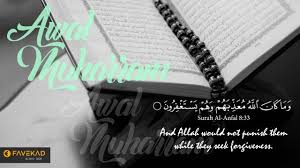 Awal
Muharram
Awal
Muharram
وَمَا كَانَ اللَّهُ مُعَذِّبَهُمْ وَهُمْ يَسْتَغْفِرُونَ
Surah Al-Anfal 8:33
And Allah would not punish them
while they seek forgiveness.
FAVEKAD